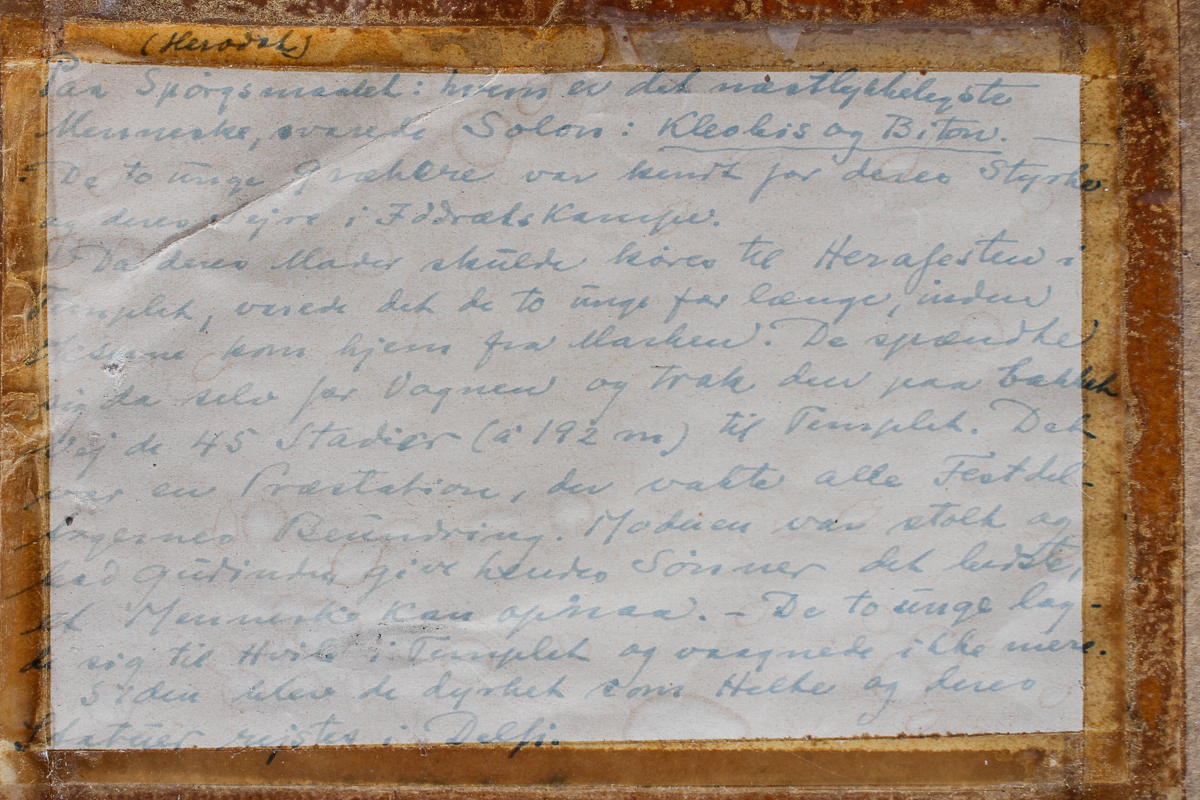 (Herodot)
Paa Spørgsmaalet: hvem er det næstlykkeligste
Menneske, svarede Solon: Kleobis og Biton. —
De to unge Grækere var kendt for deres Styrke
og deres Sejre i IdrætsKampe.
Da deres Moder skulde køres til Herafesten i
Templet, varede det de to unge for længe, inden
Okserne kom hjem fra Marken. De spændte
sig da selv for Vognen og trak den paa bakket
Vej de 45 Stadier (à 192 m) til Templet. Det
var en Præstation, der vakte alle Festdel-
tagernes Beundring. Moderen var stolt og
bad Gudinden give hendes Sønner det bedste,
et Menneske kan opnaa. – De to unge lag-
de sig til Hvile i Templet og vaagnede ikke mere.
Siden blev de dyrket som Helte og deres
Statuer rejstes i Delfi.